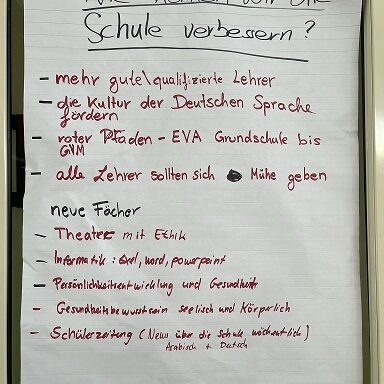 Wie können wir die
Schule verbessern?
- mehr gute\qualifizierte Lehrer
- die Kultur der Deutschen Sprache
fördern
- roter Pfaden - EVA Grundschule bis
GYM
- alle Lehrer sollten sich Mühe geben
neue Fächer
- Theater mit Ethik
- Informatik: Exel, word, powerpoint
- Persönlichkeitsentwicklung und Gesundheit
- Gesundheitsbewusstsein seelisch und Körperlich
- Schülerzeitung (News über die Schule wöchentlich)
Arabisch + Deutsch